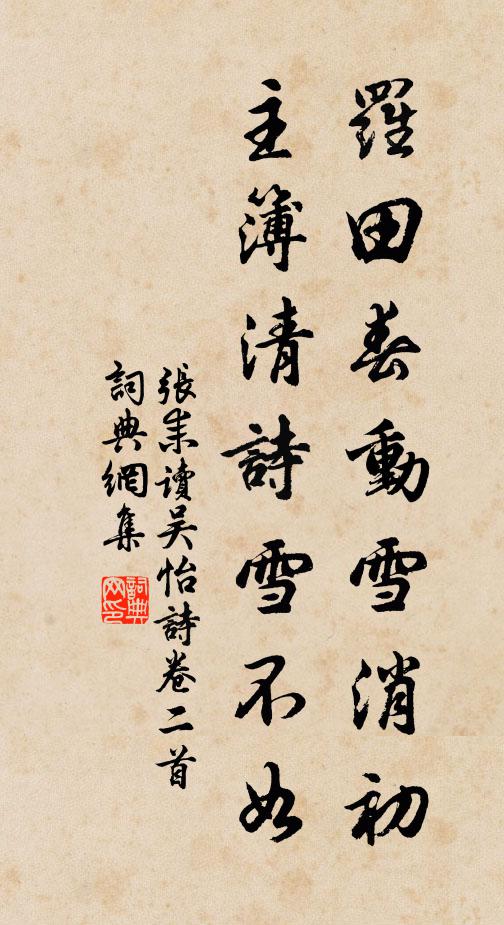 羅田春動雪消初
主簿清詩雪不如
張耒讀吴怡詩卷二首
詞典網集
詞典網印